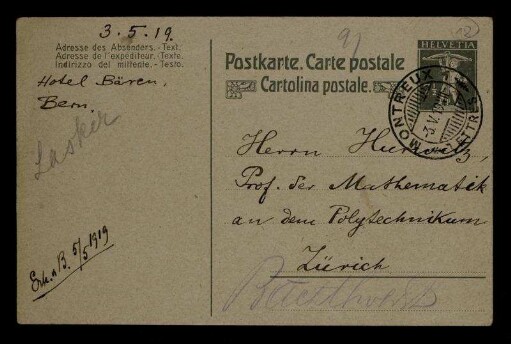 3.5.19.
Adresse des Absenders. - Text.
Adresse de l'expéditeur. - Texte.
Indirizzo del mittente. - Testo.
Hotel Bären,
Bern.
Lasker
Erh. B. 5/5 1919
91
Postkarte. Carte postale
Cartolina postale.
HELVETIA
MONTREUX 1
LETTRES
Herrn Hurwitz,
Prof. der Mathematik
an dem Polytechnikum
Zürich